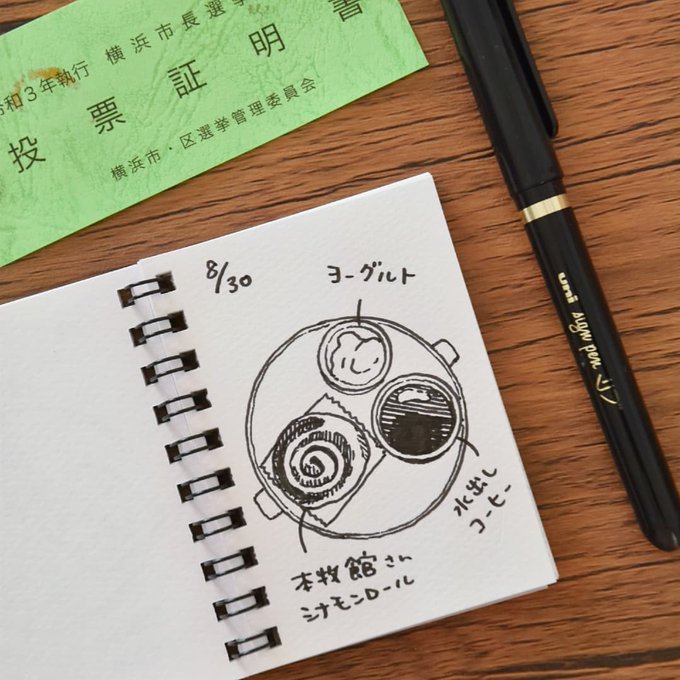 和3年執行 横浜市長選挙
投票証明書
横浜市・区選挙管理委員会
uni
sign pen
8/30
ヨーグルト
水出し
コーヒー
本牧館さん
シナモンロール